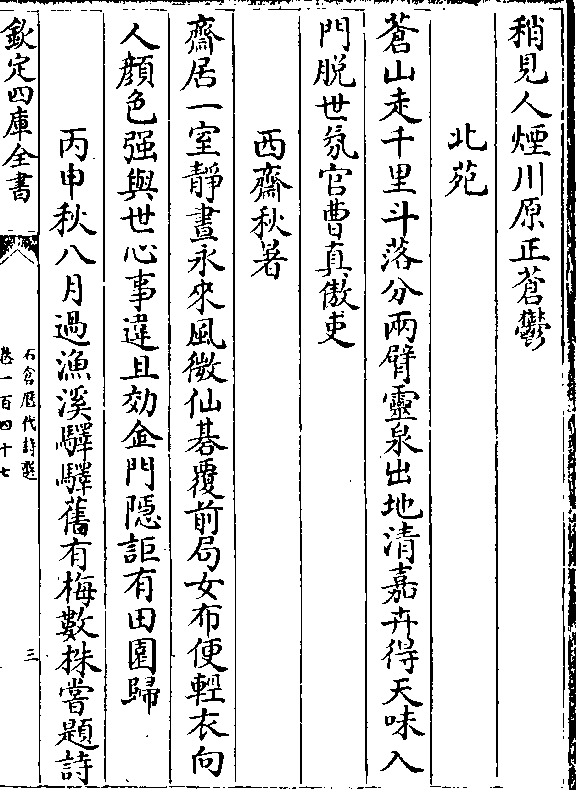 稍見人煙川原正蒼鬱
北苑
蒼山走千里斗落分兩臂靈泉出地清嘉卉得天味入
門脱世氛官曹真傲吏
西齋秋著
齋居一室靜晝永來風微仙碁覆前局女布便輕衣向
人顔色强與世心事違且効金門隠詎有田園歸
丙申秋八月過漁溪驛驛舊有梅數株嘗題詩
欽定四庫全書
石倉歴代詩選
卷一百四十七
三